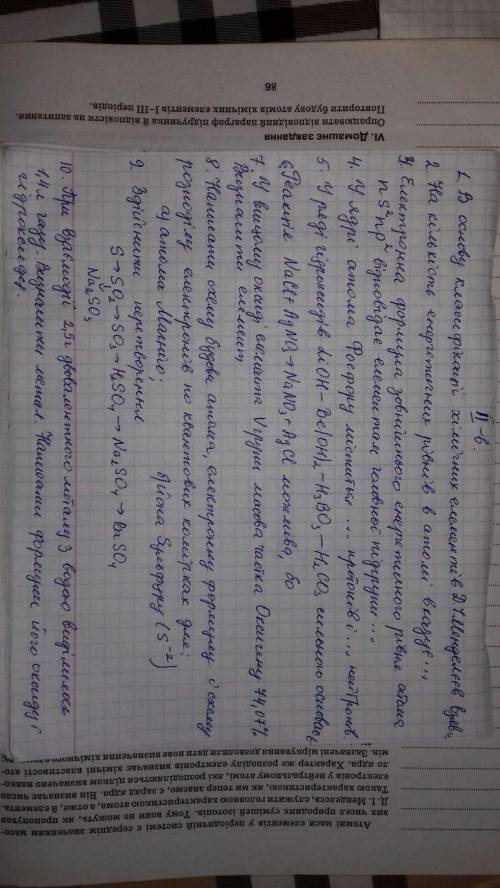 Атомні маси елементів у періодичній системі є середнім значенням масо-
вих чисел природних сумішей ізотопів. Тому вони не можуть, як пропонував
Д. І. Менделєєв, служити головною характеристикою атома, а отже, й елемента.
Такою характеристикою, як ми тепер знаємо, є заряд ядра. Він визначає число
електронів у нейтральному атомі, які розподіляються цілком визначено навко-
ло ядра. Характер же розподілу електронів визначає хімічні властивості ато-
мів. Зазначені міркування дозволили дати нове визначення хімічного
ІІ-в.
1. В основу класифікації хімічних елементів Д.І.Менделєєв взяв..
2. На кількість енергетичних рівнів в атомі вказує...
3. Електронна формула зовнішнього енергетичного рівня атома
ns²np² відповідає елементам головної підгрупи...
4. У ядрі атома Фосфору міститься ... протонів і ... нейтронів.
5. У ряді гідроксидів LiOH – Be(OH)₂ – H₃BO₃ – H₂CO₃ сильного основою є
6. Реакція NaCl + AgNO₃ → NaNO₃ + AgCl можлива, бо
7. У вищому оксиді елемента V групи масова частка Оксигену 74,07%
Визначити елемент
8. Написати схему будови атома, електронну формулу і схему
розподілу електронів по квантових комірках для:
а) атома Магнію; б) йона Сульфуру (S⁻²)
9. Здійснити перетворення
S → SO₂ → SO₃ → H₂SO₄ → Na₂SO₄ → BaSO₄
↓
Na₂SO₃
10. При взаємодії 2,5г двовалентного металу з водою виділилось
1,4л газу. Визначити метал. Написати формули його оксиду і
гідроксиду.
VI. Домашнє завдання
Опрацювати відповідний параграф підручника й відповісти на запитання.
Повторити будову атомів хімічних елементів І–ІІІ періодів.
86